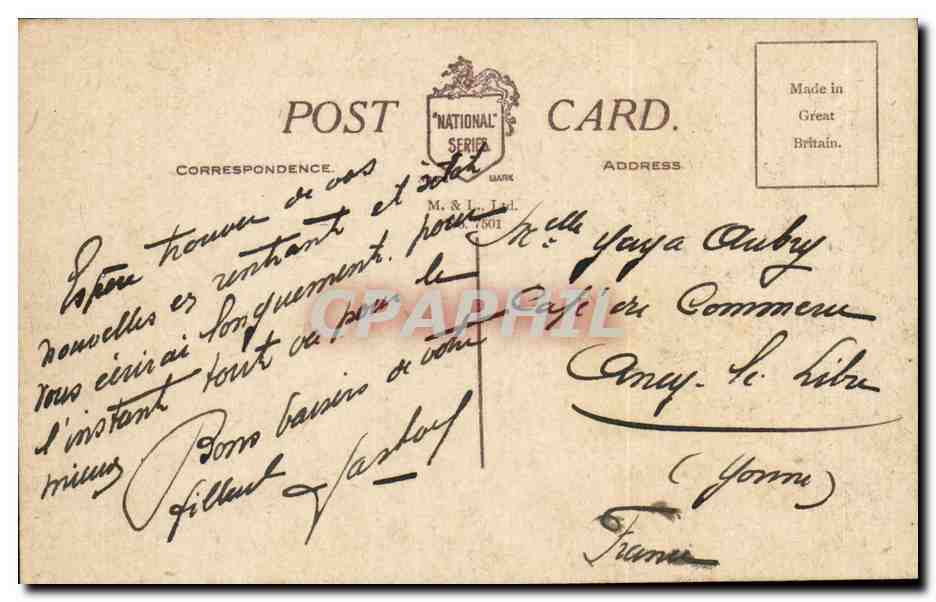 POST CARD.
"NATIONAL"
SERIES
MARK
CORRESPONDENCE.
ADDRESS
M. & L., Ltd.
7501
Made in
Great
Britain.
Espère trouver de vos
nouvelles en rentrant et
vous écrirai longuement. pour
l'instant tout va pour le
mieux
Bons baisers de votre
filleul
Melle Yaya Aubry
Café du Commerce
Ancy-le-Libre
(Yonne)
France
CPAPHIL